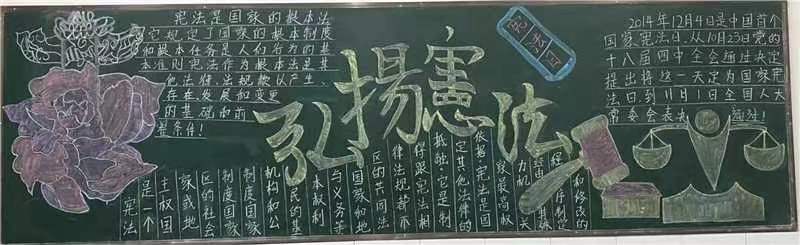 宪法是国家的根本法
它规定了国家的根本制度
和根本任务是人们行为的基
本准则宪法作为根本法是其
他法律、法规赖以产生、
存在发展和变更
的基础和前
提条件!
弘揚憲法
宪法日
2014年12月4日是中国首个
国家宪法日从10月23日党的
十八届四中全会通过决定
提出将这一天定为国家宪
法日到11月1日全国人大
常委会表决通过!
宪法
是一个
主权国
家或地
区的社会
制度国家
制度国家
机构和公
民的基
本权利
与义务等
国家和地
区的共同法
律法规若不
得跟宪法相
抵触·它是制
定其他法律的
依据宪法是国
家最高权
力机关
经由特殊
程序制定
和修改的